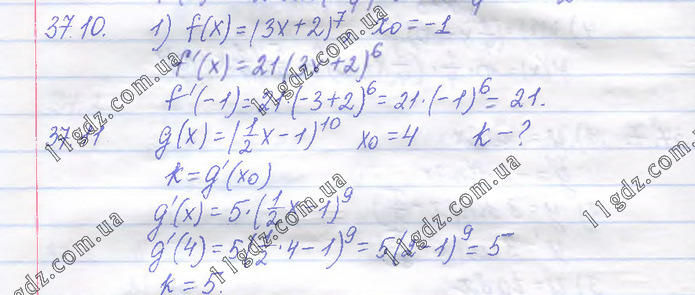 37.10. 1) f(x)=(3x+2)^7 x₀=-1
f'(x)=21(3x+2)^6
f'(-1)=21·(-3+2)^6=21·(-1)^6=21.
37.11 g(x)=(1/2 x-1)^10 x₀=4 k-?
k=g'(x₀)
g'(x)=5·(1/2 x-1)^9
g'(4)=5(1/2·4-1)^9=5(2-1)^9=5
k=5.
11gdz.com.ua
11gdz.com.ua
11gdz.com.ua
11gdz.com.ua
11gdz.com.ua
11gdz.com.ua